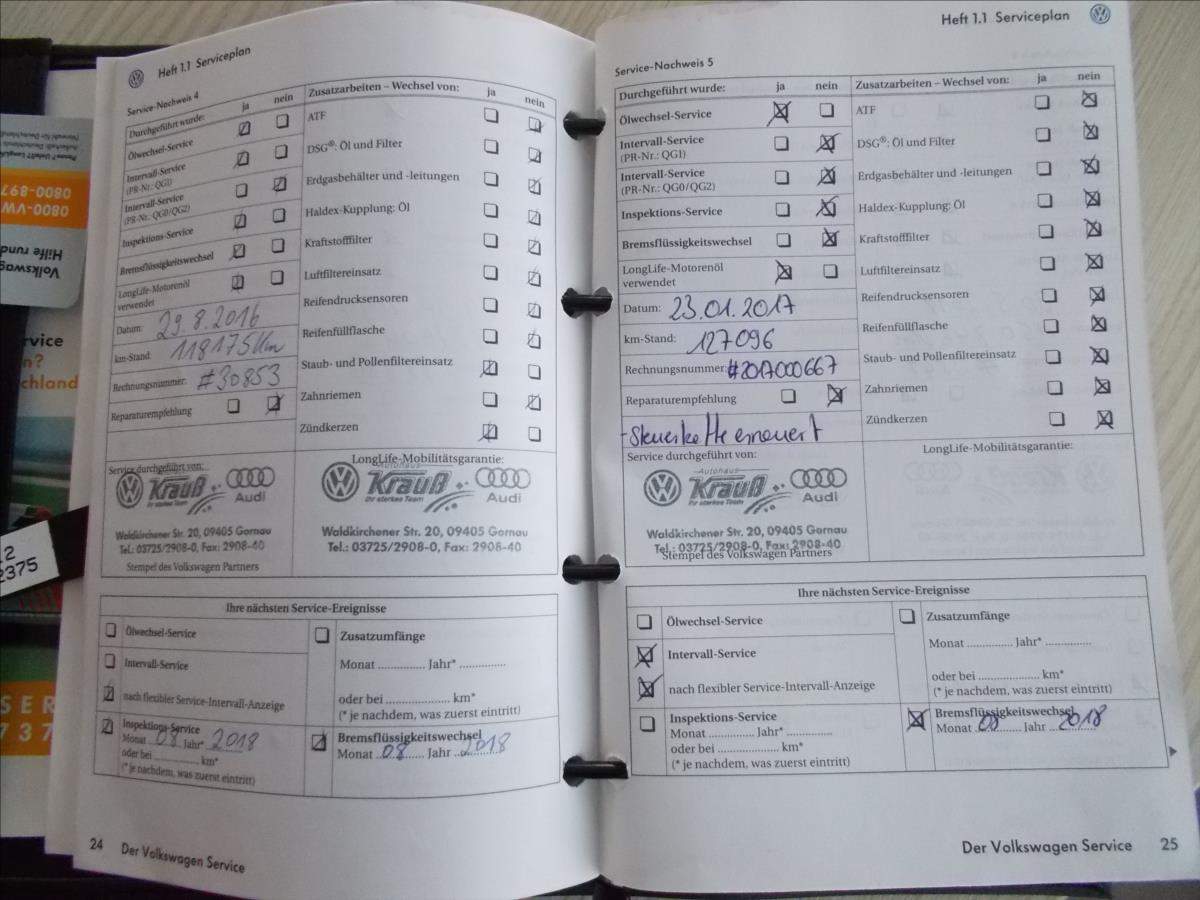 Heft 1.1 Serviceplan
Service-Nachweis 4
Durchgeführt wurde: ja nein
Ölwechsel-Service
Intervall-Service
(PR-Nr.: QG1)
Intervall-Service
(PR-Nr.: QG0/QG2)
Inspektions-Service
Bremsflüssigkeitswechsel
LongLife-Motorenöl
verwendet
Datum: 29.8.2016
km-Stand: 118175 km
Rechnungsnummer: #30853
Reparaturempfehlung
Zusatzarbeiten – Wechsel von: ja nein
ATF
DSG®: Öl und Filter
Erdgasbehälter und -leitungen
Haldex-Kupplung: Öl
Kraftstofffilter
Luftfiltereinsatz
Reifendrucksensoren
Reifenfüllflasche
Staub- und Pollenfiltereinsatz
Zahnriemen
Zündkerzen
Service durchgeführt von:
Autohaus
Krauß
Ihr starkes Team
Audi
Waldkirchener Str. 20, 09405 Gornau
Tel.: 03725/2908-0, Fax: 2908-40
Stempel des Volkswagen Partners
LongLife-Mobilitätsgarantie:
Krauß
Ihr starkes Team
Audi
Waldkirchener Str. 20, 09405 Gornau
Tel.: 03725/2908-0, Fax: 2908-40
Ihre nächsten Service-Ereignisse
Ölwechsel-Service
Intervall-Service
nach flexibler Service-Intervall-Anzeige
Inspektions-Service
Monat 08 Jahr* 2018
oder bei ............... km*
(* je nachdem, was zuerst eintritt)
Zusatzumfänge
Monat ............. Jahr* .............
oder bei ......................... km*
(* je nachdem, was zuerst eintritt)
Bremsflüssigkeitswechsel
Monat 08 Jahr 2018
24 Der Volkswagen Service
Heft 1.1 Serviceplan
Service-Nachweis 5
Durchgeführt wurde: ja nein
Ölwechsel-Service
Intervall-Service
(PR-Nr.: QG1)
Intervall-Service
(PR-Nr.: QG0/QG2)
Inspektions-Service
Bremsflüssigkeitswechsel
LongLife-Motorenöl
verwendet
Datum: 23.01.2017
km-Stand: 127096
Rechnungsnummer: #20A000667
Reparaturempfehlung
- Steuerkette erneuert
Zusatzarbeiten – Wechsel von: ja nein
ATF
DSG®: Öl und Filter
Erdgasbehälter und -leitungen
Haldex-Kupplung: Öl
Kraftstofffilter
Luftfiltereinsatz
Reifendrucksensoren
Reifenfüllflasche
Staub- und Pollenfiltereinsatz
Zahnriemen
Zündkerzen
Service durchgeführt von:
Autohaus
Krauß
Ihr starkes Team
Audi
Waldkirchener Str. 20, 09405 Gornau
Tel.: 03725/2908-0, Fax: 2908-40
Stempel des Volkswagen Partners
LongLife-Mobilitätsgarantie:
Ihre nächsten Service-Ereignisse
Ölwechsel-Service
Intervall-Service
nach flexibler Service-Intervall-Anzeige
Inspektions-Service
Monat ............. Jahr* .............
oder bei ......................... km*
(* je nachdem, was zuerst eintritt)
Zusatzumfänge
Monat ............. Jahr* .............
oder bei ......................... km*
(* je nachdem, was zuerst eintritt)
Bremsflüssigkeitswechsel
Monat 08 Jahr 2018
Der Volkswagen Service 25
0800-897
0800-VW
Hilfe rund
Volkswag
rvice
n?
chland
2
2375
SER
737